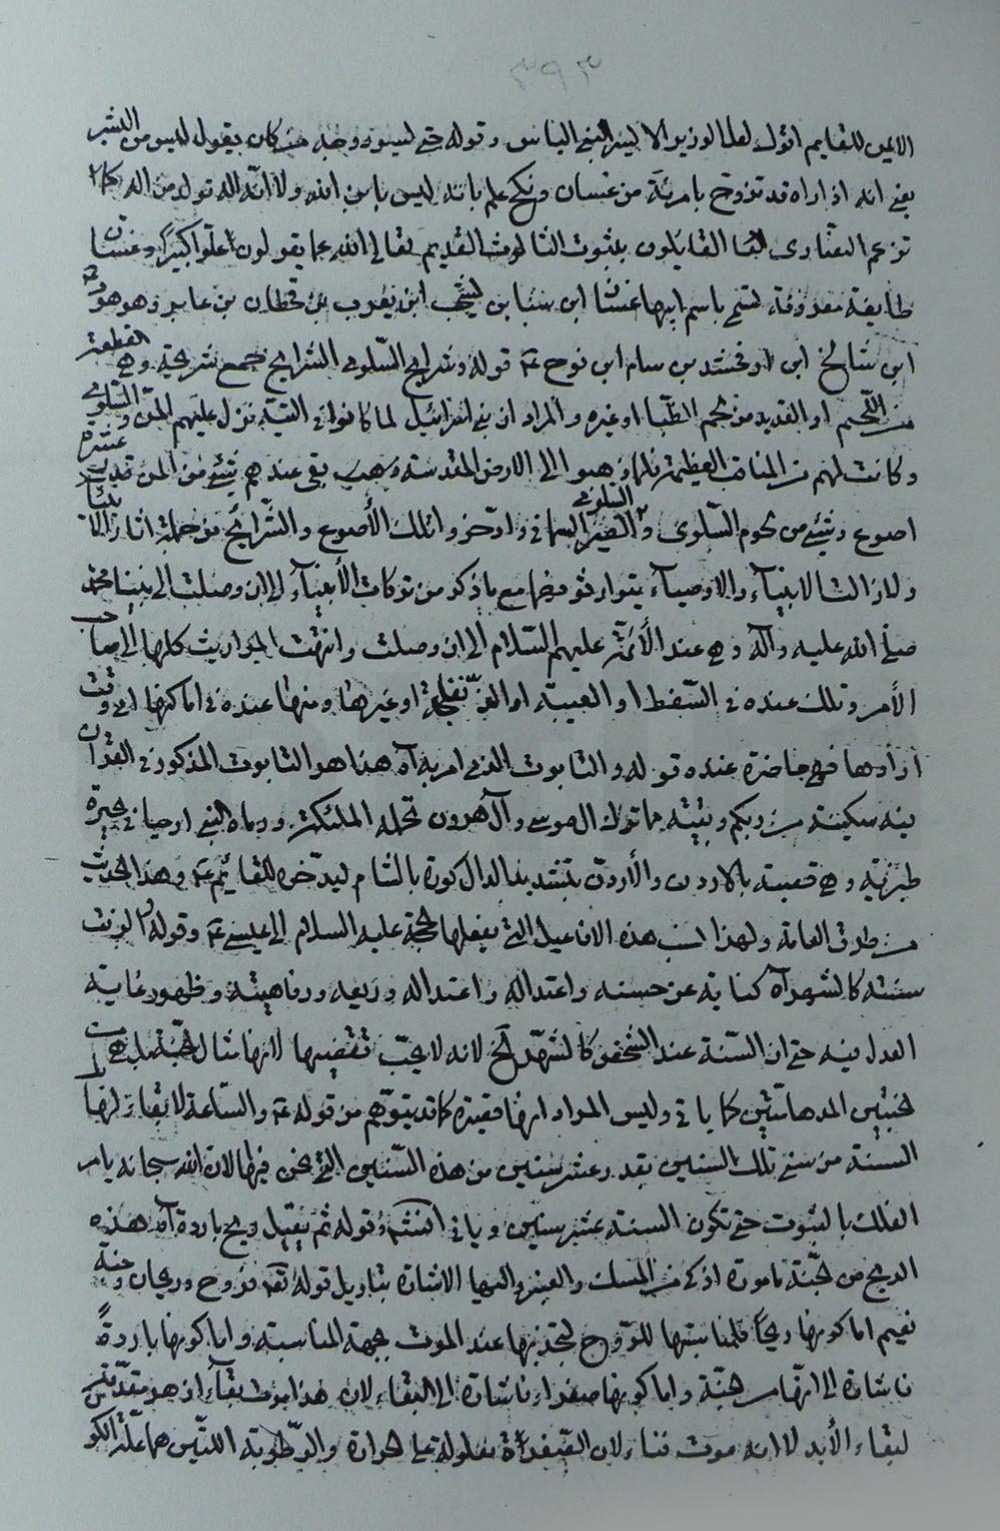 ٣٩٣
الايمن للقايم اقول لعل الوزير الا ليسر النبي الياس وقوله حتى ليسوؤ وجه من كان يقول ليس من البشر
يعني انه اذ اراه قد تزوج بامرئة من غسان ونكح علم بانه ليس بابن الله ولا انه اله تولد من اله كما
تزعم النصارى القايلون بثبوت الثالوث القديم تعالى الله عما يقولون علوا كبيرا وغسان
طايفة معروفة تسمى باسم ابيها غسان ابن سبا بن يشجب ابن يعرب بن قحطان بن عابر وهو هود ع
ابن شالخ ابن ارفخشد بن سام ابن نوح ع قوله وشرايح السلوى الشرايح جمع شريحة وهي القطعة
من اللحم او القديد من لحم الظبا او غيره والمراد ان بني اسرائيل لما كانوا في التيه نزل عليهم المن والسلوى
وكانت لهم من المناقب العظيمة فلما ذهبوا الى الارض المقدسة وهب بقى عندهم شيئ من المن قدر عشرة
اصوع وشيئ من لحوم السلوى و السلوى الطير السمانى وادخروا تلك الأصوع والشرائح من جملة اثار الانبياء
ولا زالت الانبياء والاوصياء يتوارثونها مع ما ذكر من تركات الأنبياء الى ان وصلت الى نبينا محمد
صلى الله عليه وآله وهي عند الأئمة عليهم السلام الى ان وصلت وانتهت المواريث كلها الى صاحب
الأمر وتلك عنده في السفط او العيبة او غيرها ومنها عنده في اماكنها اى وقت
ارادها فهي حاضرة عنده قوله والتابوت الذي امر به آه هذا هو التابوت المذكور في القران
فيه سكينة من ربكم وبقية مما ترك ال موسى وآل هرون تحمله الملئكة ورماه النبي ارميا في بحيرة
طبرية وهي قصبة بالاردن والأردن بتشديد الدال كورة بالشام ليدخره للقائم ع وهذا الحديث
من طرق العامة ولهذا نسب هذه الافاعيل التي يفعلها الحجة عليه السلام الى عيسى ع وقوله والوقت
سنته كالشهر آه كناية عن حسنه واعتداله واعتداله وربعه ورفاهيته وظهور غاية
العدل فيه حتى ان السنة عند الشخص كالشهر الخ لانه لا يحب تقضيها لانها مثال الجنة بل هي من
الجنتين المدهامتين كما ياتى وليس المراد انها قصيرة كما قد يتوهم من قوله ع والساعة لا بقاء لها
السنة من سني تلك السنين بقدر عشر سنين من هذه السنين التي نحن فيها لان الله سبحانه يامر
الفلك بالثبوت حتى تكون السنة عشر سنين وياتى انشاء الله قوله ثم يقبل ريح باردة آه هذه
الريح من الجنة نامورة اذكى من المسك والعنبر واليها الاشارة بتاويل قوله تع فروح وريحان وجنة
نعيم اما كونها ريحا فلمناسبتها للروح لتجذبها عند الموت بجهة المناسبة واما كونها باردة
فاشارة الى انها من هبة واما كونها صفراء فاشارة الى البقاء لان هذا موت بقاء اذ هو مقدمة
لبقاء الأبد لا انه موت فناء لان الصفرة معلولة على الحرارة والرطوبة اللتين هما علة الكون